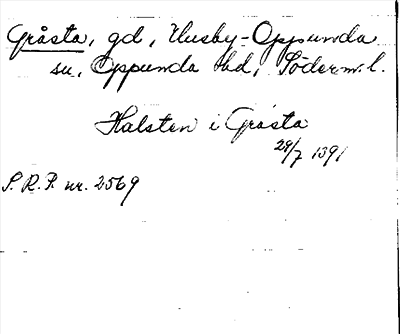 Gråsta, gd, Husby-Oppunda
sn, Oppunda hd, Söderm. l.
Halsten i Grasta
29/7 1391
S.R.P. nr. 2569